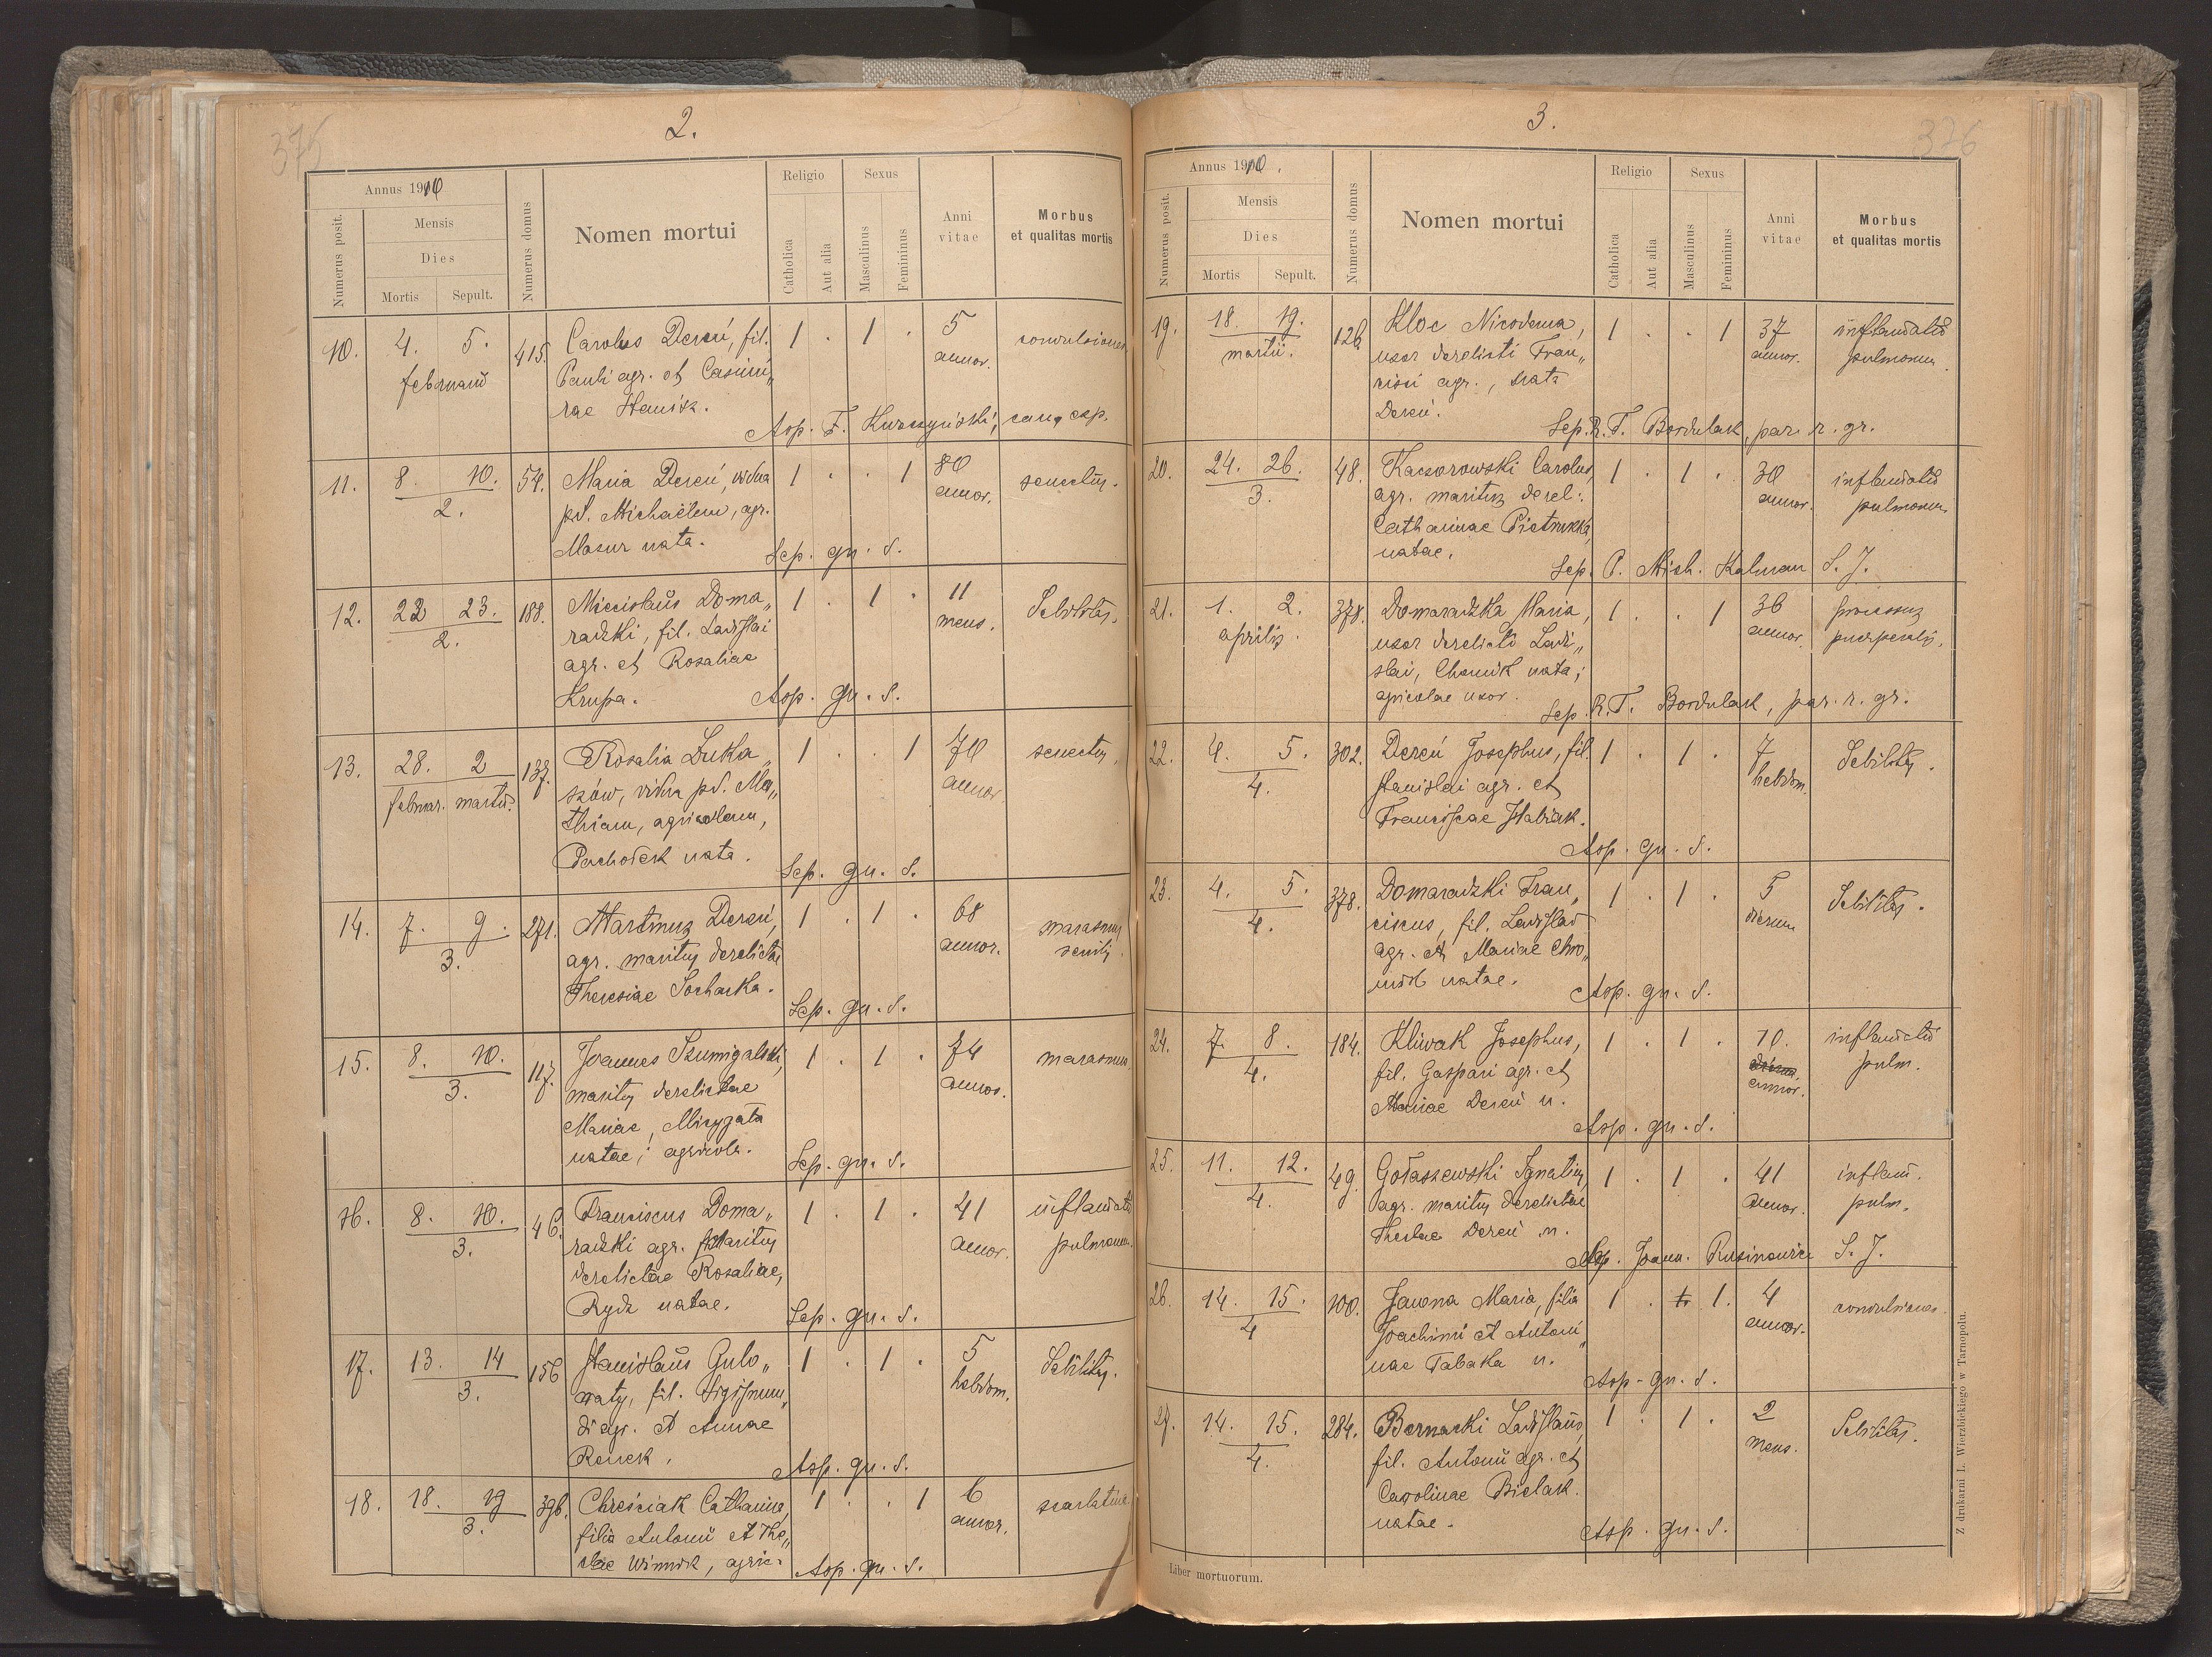 375
2.
Annus 1910
Numerus posit.
Mensis
Dies
Mortis
Sepult.
Numerus domus
Nomen mortui
Religio
Catholica
Aut alia
Sexus
Masculinus
Femininus
Anni vitae
Morbus et qualitas mortis
10. 4. 5. 415. Carolus Dereń, fil. 1 . 1 . 5 convulsiones
februarii Pauli agr. et Casimi„ annor.
rae Stanisz.
Asp. F. Kurczyński, coop. exp.
11. 8. 10. 54. Maria Dereń, vidua 1 . . 1 80 senectus.
2. pd. Michaëlem, agr. annor.
Mazur nata. Sep. qu. s.
12. 22 23. 188. Miecislaus Doma„ 1 . 1 . 11 Debilitas.
2. radzki, fil. Ladislai mens.
agr. et Rosaliae
Krupa. Asp. qu. s.
13. 28. 2 137. Rosalia Łuka„ 1 . . 1 70 senectus.
februar. martii. szów, vidua pd. Ma„ annor.
thiam, agricolam,
Pachołek nata. Sep. qu. s.
14. 7. 9. 271. Martinus Dereń, 1 . 1 . 68 marasmus
3. agr. maritus derelictae annor. senilis.
Theresiae Sochacka. Sep. qu. s.
15. 8. 10. 117. Joannes Szumigalski, 1 . 1 . 74 marasmus.
3. maritus derelictae annor.
Mariae, Mizygała
natae; agricola. Sep. qu. s.
16. 8. 10. 46. Franciscus Doma„ 1 . 1 . 41 inflamatio
3. radzki agr. maritus annor. pulmonum.
derelictae Rosaliae,
Rydz natae. Sep. qu. s.
17. 13. 14 156 Stanislaus Gulo„ 1 . 1 . 5 Debilitas.
3. waty, fil. Sigismun„ hebdom.
di agr. et Annae
Renek. Asp. qu. s.
18. 18. 19 396. Chrościak Catharina, 1 . . 1 6 scarlatina
3. filia Antonii et The„ annor.
clae Winnik, agric. Asp. qu. s.
376
3.
Annus 1910.
Numerus posit.
Mensis
Dies
Mortis
Sepult.
Numerus domus
Nomen mortui
Religio
Catholica
Aut alia
Sexus
Masculinus
Femininus
Anni vitae
Morbus et qualitas mortis
19. 18. 19. 126 Kloc Nicodema, 1 . . 1 37 inflamatio
martii. uxor derelicti Fran„ annor. pulmonum.
cisci agr., nata
Dereń.
Sep. R. T. Bordulak, par. r. gr.
20. 24. 26. 48. Kaczorowski Carolus, 1 . 1 . 30 inflamatio
3. agr. maritus derel. annor. pulmonum.
Catharinae Pietruszka,
natae.
Sep. P. Mich. Kalman S. J.
21. 1. 2. 378. Domaradzka Maria, 1 . . 1 36 processus
aprilis. uxor derelicti Ladi„ annor. puerperalis.
slai, Chomik nata;
agricolae uxor.
Sep. R. T. Bordulak, par. r. gr.
22. 4. 5. 302. Dereń Josephus, fil. 1 . 1 . 7 Debilitas.
4. Stanislai agr. et hebdom.
Franciscae Stabiak.
Asp. qu. s.
23. 4. 5. 378. Domaradzki Fran„ 1 . 1 . 5 Debilitas.
4. ciscus, fil. Ladislai dierum
agr. et Mariae Cho„
mik natae. Asp. qu. s.
24. 7. 8. 184. Kliwak Josephus, 1 . 1 . 10. inflamatio
4. fil. Gaspari agr. et annor. pulm.
Mariae Dereń n.
Asp. qu. s.
25. 11. 12. 49. Gołaszewski Ignatius, 1 . 1 . 41 inflam.
4. agr. maritus derelictae annor. pulm.
Theclae Dereń n.
Asp. Joann. Rusinowicz S. J.
26. 14. 15. 100. Jawona Maria, filia 1 . 1. 4 convulsiones.
4 Joachimi et Antoni„ annor.
nae Tabaka n.
Asp. qu. s.
27. 14. 15. 284. Bernacki Ladislaus, 1 . 1 . 2 Debilitas.
4. fil. Antonii agr. et mens.
Carolinae Bielak.
natae.
Asp. qu. s.
Liber mortuorum.
Z drukarni L. Wierzbickiego w Tarnopolu.